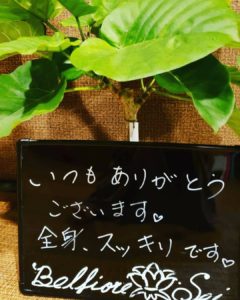 いつもありがとう
ございます♡
全身、スッキリです♡
Belfiore Sai